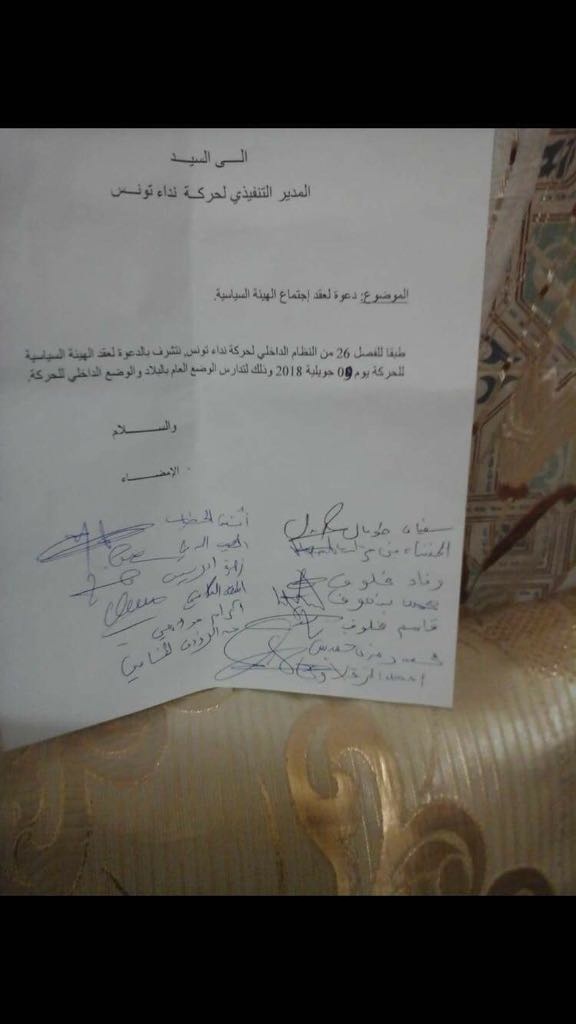 الـــى السيـــد
المدير التنفيذي لحركة نداء تونس
الموضوع: دعوة لعقد إجتماع الهيئة السياسية.
طبقا للفصل 26 من النظام الداخلي لحركة نداء تونس, نتشرف بالدعوة لعقد الهيئة السياسية
للحركة يوم 09 جويلية 2018 وذلك لتدارس الوضع العام بالبلاد والوضع الداخلي للحركة.
والســـــــلام
الإمضـــــاء
سفيان طوبال
الخنساء بن
وفاء مخلوف
محمد بن صوف
قاسم مخلوف
محمد رمزي خميس
احمد الزقلاوي
أنس الحطاب
زهرة ادريس
عبد الرؤوف الخماسي